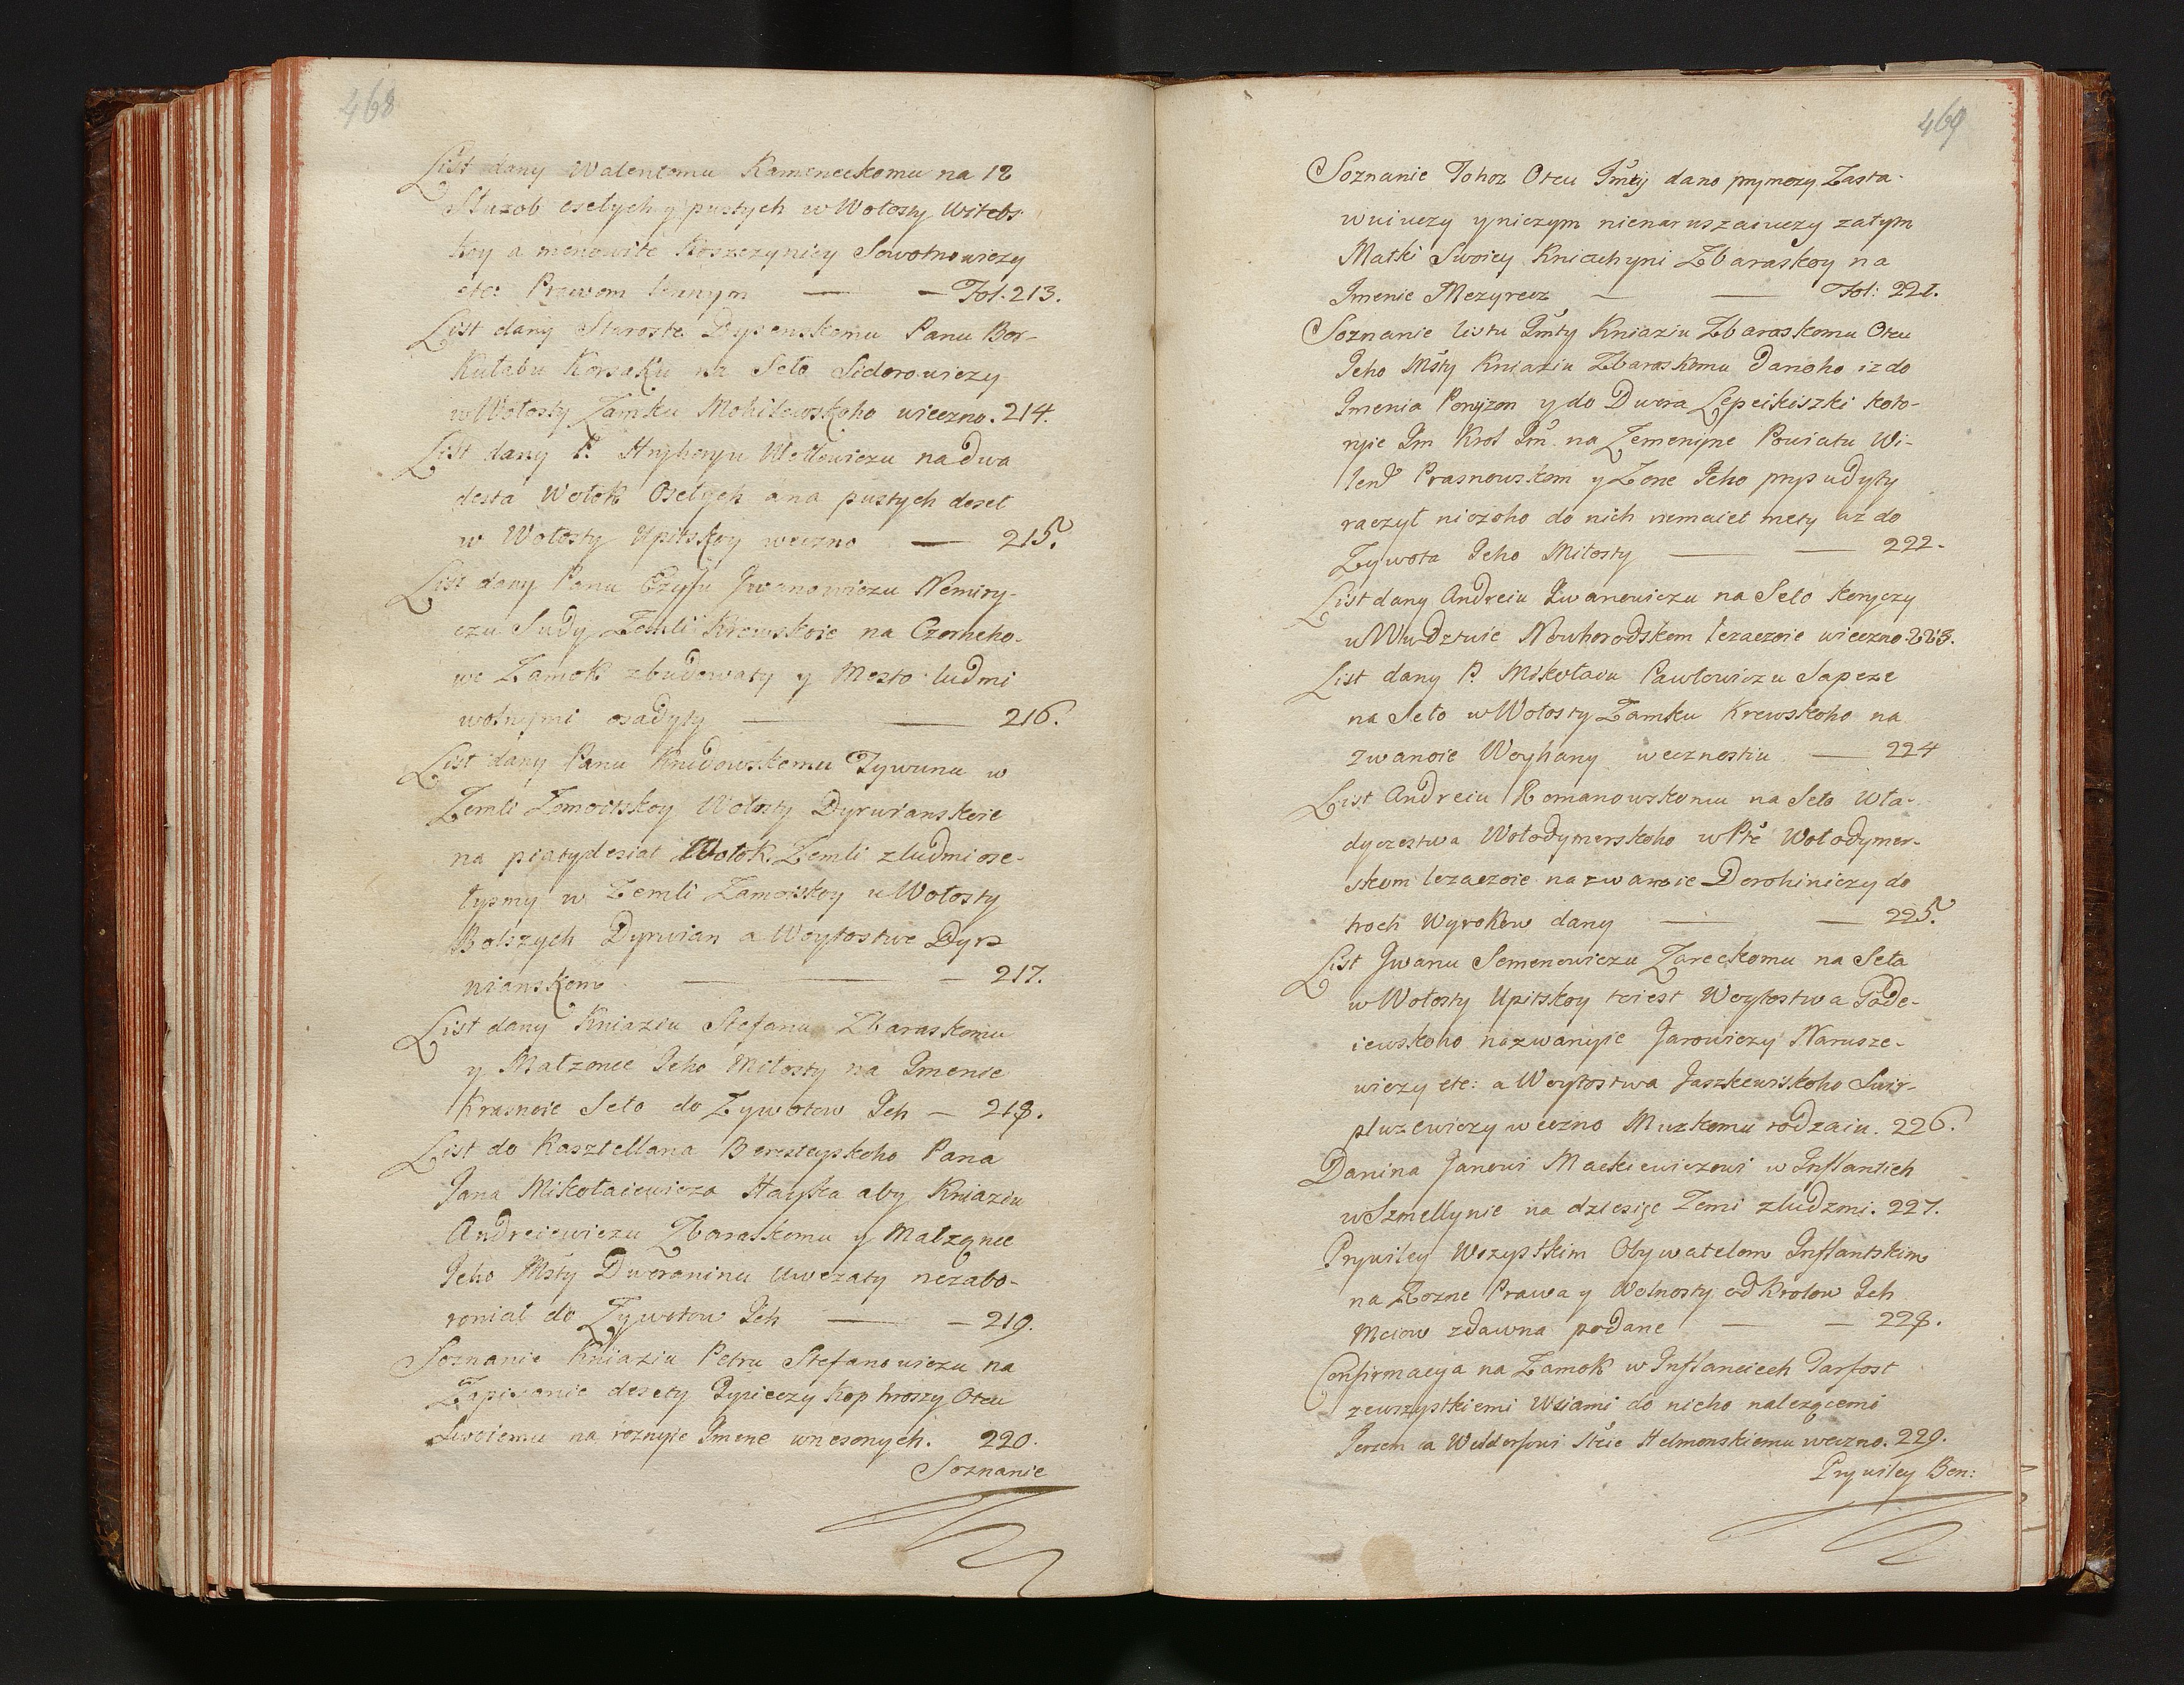 468
List dany Walentomu Kameneckomu na 12
Słuzob osełych y pustych w Wołosty Witebs
koy a menowite Koszczynicy Sowotnowiczy
etc: Prawom lennym — — Fol. 213.
List dany Staroste Dysenskomu Panu Bor-
kułabu Korsaku na Seło Sidorowiczy
w Wołosty Zamku Mohilowskoho wieczno. 214.
List dany P. Hryhoryu Wołłowiczu na dwa
desta Wołok Osełych a na pustych deset
w Wołosty Upitskoy weczno — 215.
List dany Panu Iwanowiczu Nemiry-
czu Sudy Zemli Kiewskoie na Czorneho-
we Zamok zbudowaty y Mesto ludmi
wolnymi osadyty — — 216.
List dany Panu Knidowskomu Tywunu w
Zemli Zomoitskoy Wołosty Dyrwianskoie
na piatydesiat Wołok Zemli z ludmi ose-
łysmy w Zemli Zamoiskoy u Wołosty
Bolszych Dyrwian a Woytostwe Dyrz
nianskom — — — 217.
List dany Kniaziu Stefanu Zbaraskomu
y Małzonce Jeho Miłosty na Imenie
Krasnoie Seło do Zywotow Ich — 218.
List do Kasztellana Beresteyskoho Pana
Jana Mikołaiewicza Hayka aby Kniaziu
Andreiewiczu Zbaraskomu y Małzonce
Jeho Msty Dworaninu uwezaty nezabo-
roniał do Zywotow Ich — — 219.
Soznanie Kniaziu Petru Stefanowiczu na
Zapisanie desety Tysieczy kop hroszy Otcu
Swoiemu na roznyie Imene wnesonych. 220.
Soznanie
469
Soznanie Tohoz Otcu Jmty dano prymezy Zasta-
wuiuczy y niczym nienaruszaiuczy zatym
Matki Swoiey Kniahyni Zbaraskoy na
Imenie Mezyrecz — — Fol: 221.
Soznanie listu Jmty Kniaziu Zbaraskomu Otcu
Jeho Msty Kniaziu Zbaraskomu danoho iz do
Imenia Ponyzon y do Dwora Lepeikiszki koto-
ryie Jm Krol Jm. na Zemenyne Powiatu Wi-
len Prasnowskom y Zone Jeho prysudyty
raczył niczoho do nich nemaiet mety az do
Zywota Jeho Miłosty — — 222.
List dany Andreiu Iwanowiczu na Seło Koryczy
u Wwdztwie Nowhorodskom lezaczoie wieczno. 223.
List dany P. Mikołaiu Pawłowiczu Sapeze
na Seło w Wołosty Zamku Krewskoho na
zwanoie Woyhany wecznostiu — 224
List Andreiu Romanowskomu na Seło Wła-
dyczestwa Wołodymerskoho w Pte Wołodymer-
skom lezaczoie nazwanoie Dorohiniczy do
troch Wyrokow dany — — 225.
List Iwanu Semenowiczu Zareckomu na Seła
w Wołosty Upitskoy toiest Woytostwa Pode-
iewskoho nazwanyie Jarowiczy Narusze-
wiczy etc: a Woytostwa Jaszkiewiskoho Swir-
pluzewiczy weczno Muzkomu rodzaiu. 226.
Danina Janowi Mackiewiczowi w Inflanciech
w Szmellynie na dziesięc Zemi z ludzmi. 227.
Prywiley Wszystkim Obywatelom Inflantskim
na Rozne Prawa y Wolnosty od Krolow Ich
Mciow zdawna podane — — 228.
Confirmacya na Zamok w Inflanciech Parfost
zewszystkiemi Wsiami do nicho nalezącemi
Jerzem a Weldersowi Stcie Helmonskiemu weczno. 229.
Prywiley Ben: